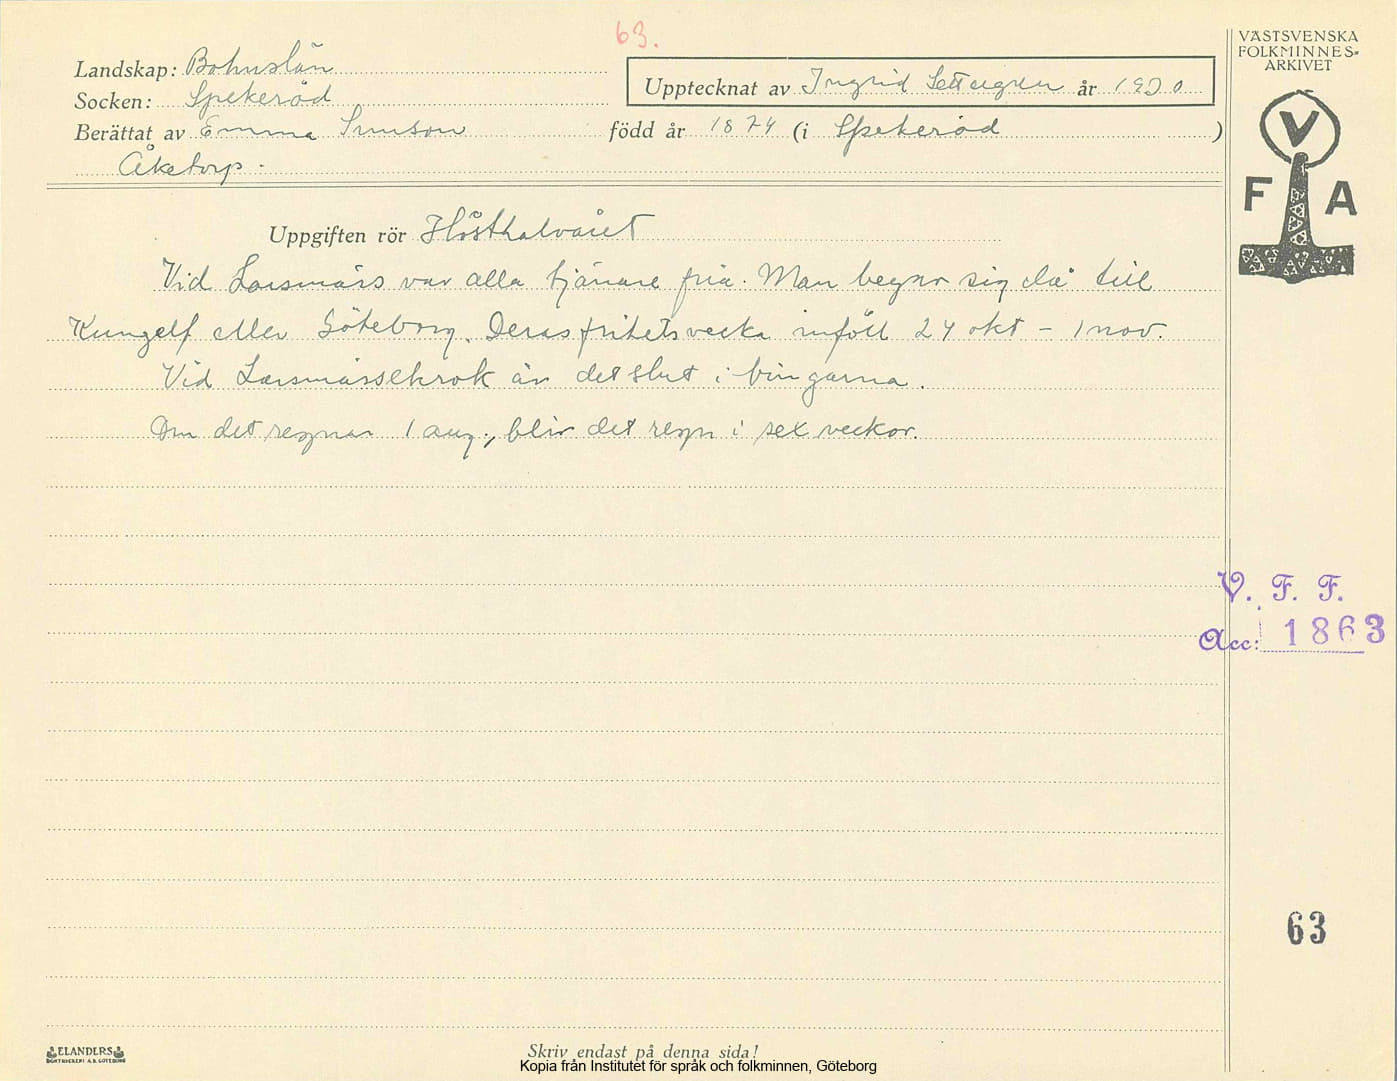 63.
VÄSTSVENSKA
FOLKMINNES-
ARKIVET
Landskap: Bohuslän
Upptecknat av Ingrid Settergren år 1920
Socken: Spekeröd
Berättat av Emma Simson född år 1874 (i Spekeröd )
Åketorp.
V
F A
Uppgiften rör Hösthalvåret
Vid Larsmäss var alla tjänare fria. Man begav sig då till
Kungelf eller Göteborg. Deras frihetsvecka inföll 24 okt - 1 nov.
Vid Larsmässekrok är det slut i bingarna.
Om det regnar 1 aug., blir det regn i sex veckor.
V. F. F.
Acc: 1863
63
ELANDERS
BOKTRYCKERI A.B. GÖTEBORG
Skriv endast på denna sida!
Kopia från Institutet för språk och folkminnen, Göteborg